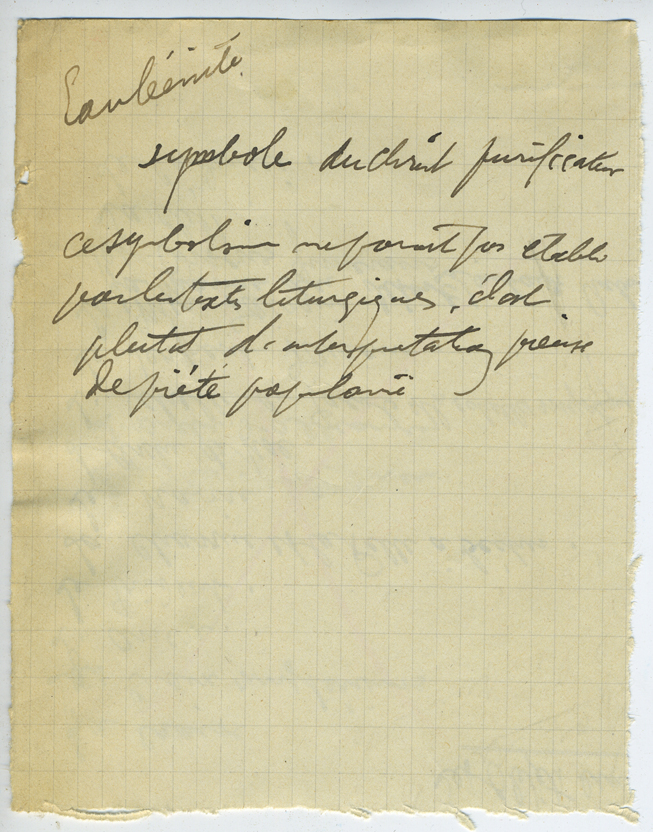 Eau bénite.
symbole du christ purificateur
ce symbolisme ne parait pas établi
par les textes liturgiques, c'est
plutot d'interprétation pieuse
de piété populaire